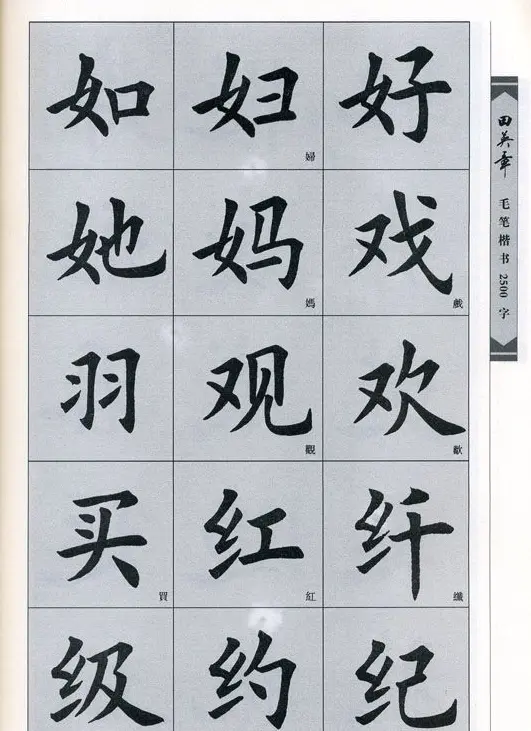 如 妇 婦 好
她 妈 媽 戏 戲
羽 观 觀 欢 歡
买 買 红 紅 纤 纖
级 约 纪
田英章 毛笔楷书2500字